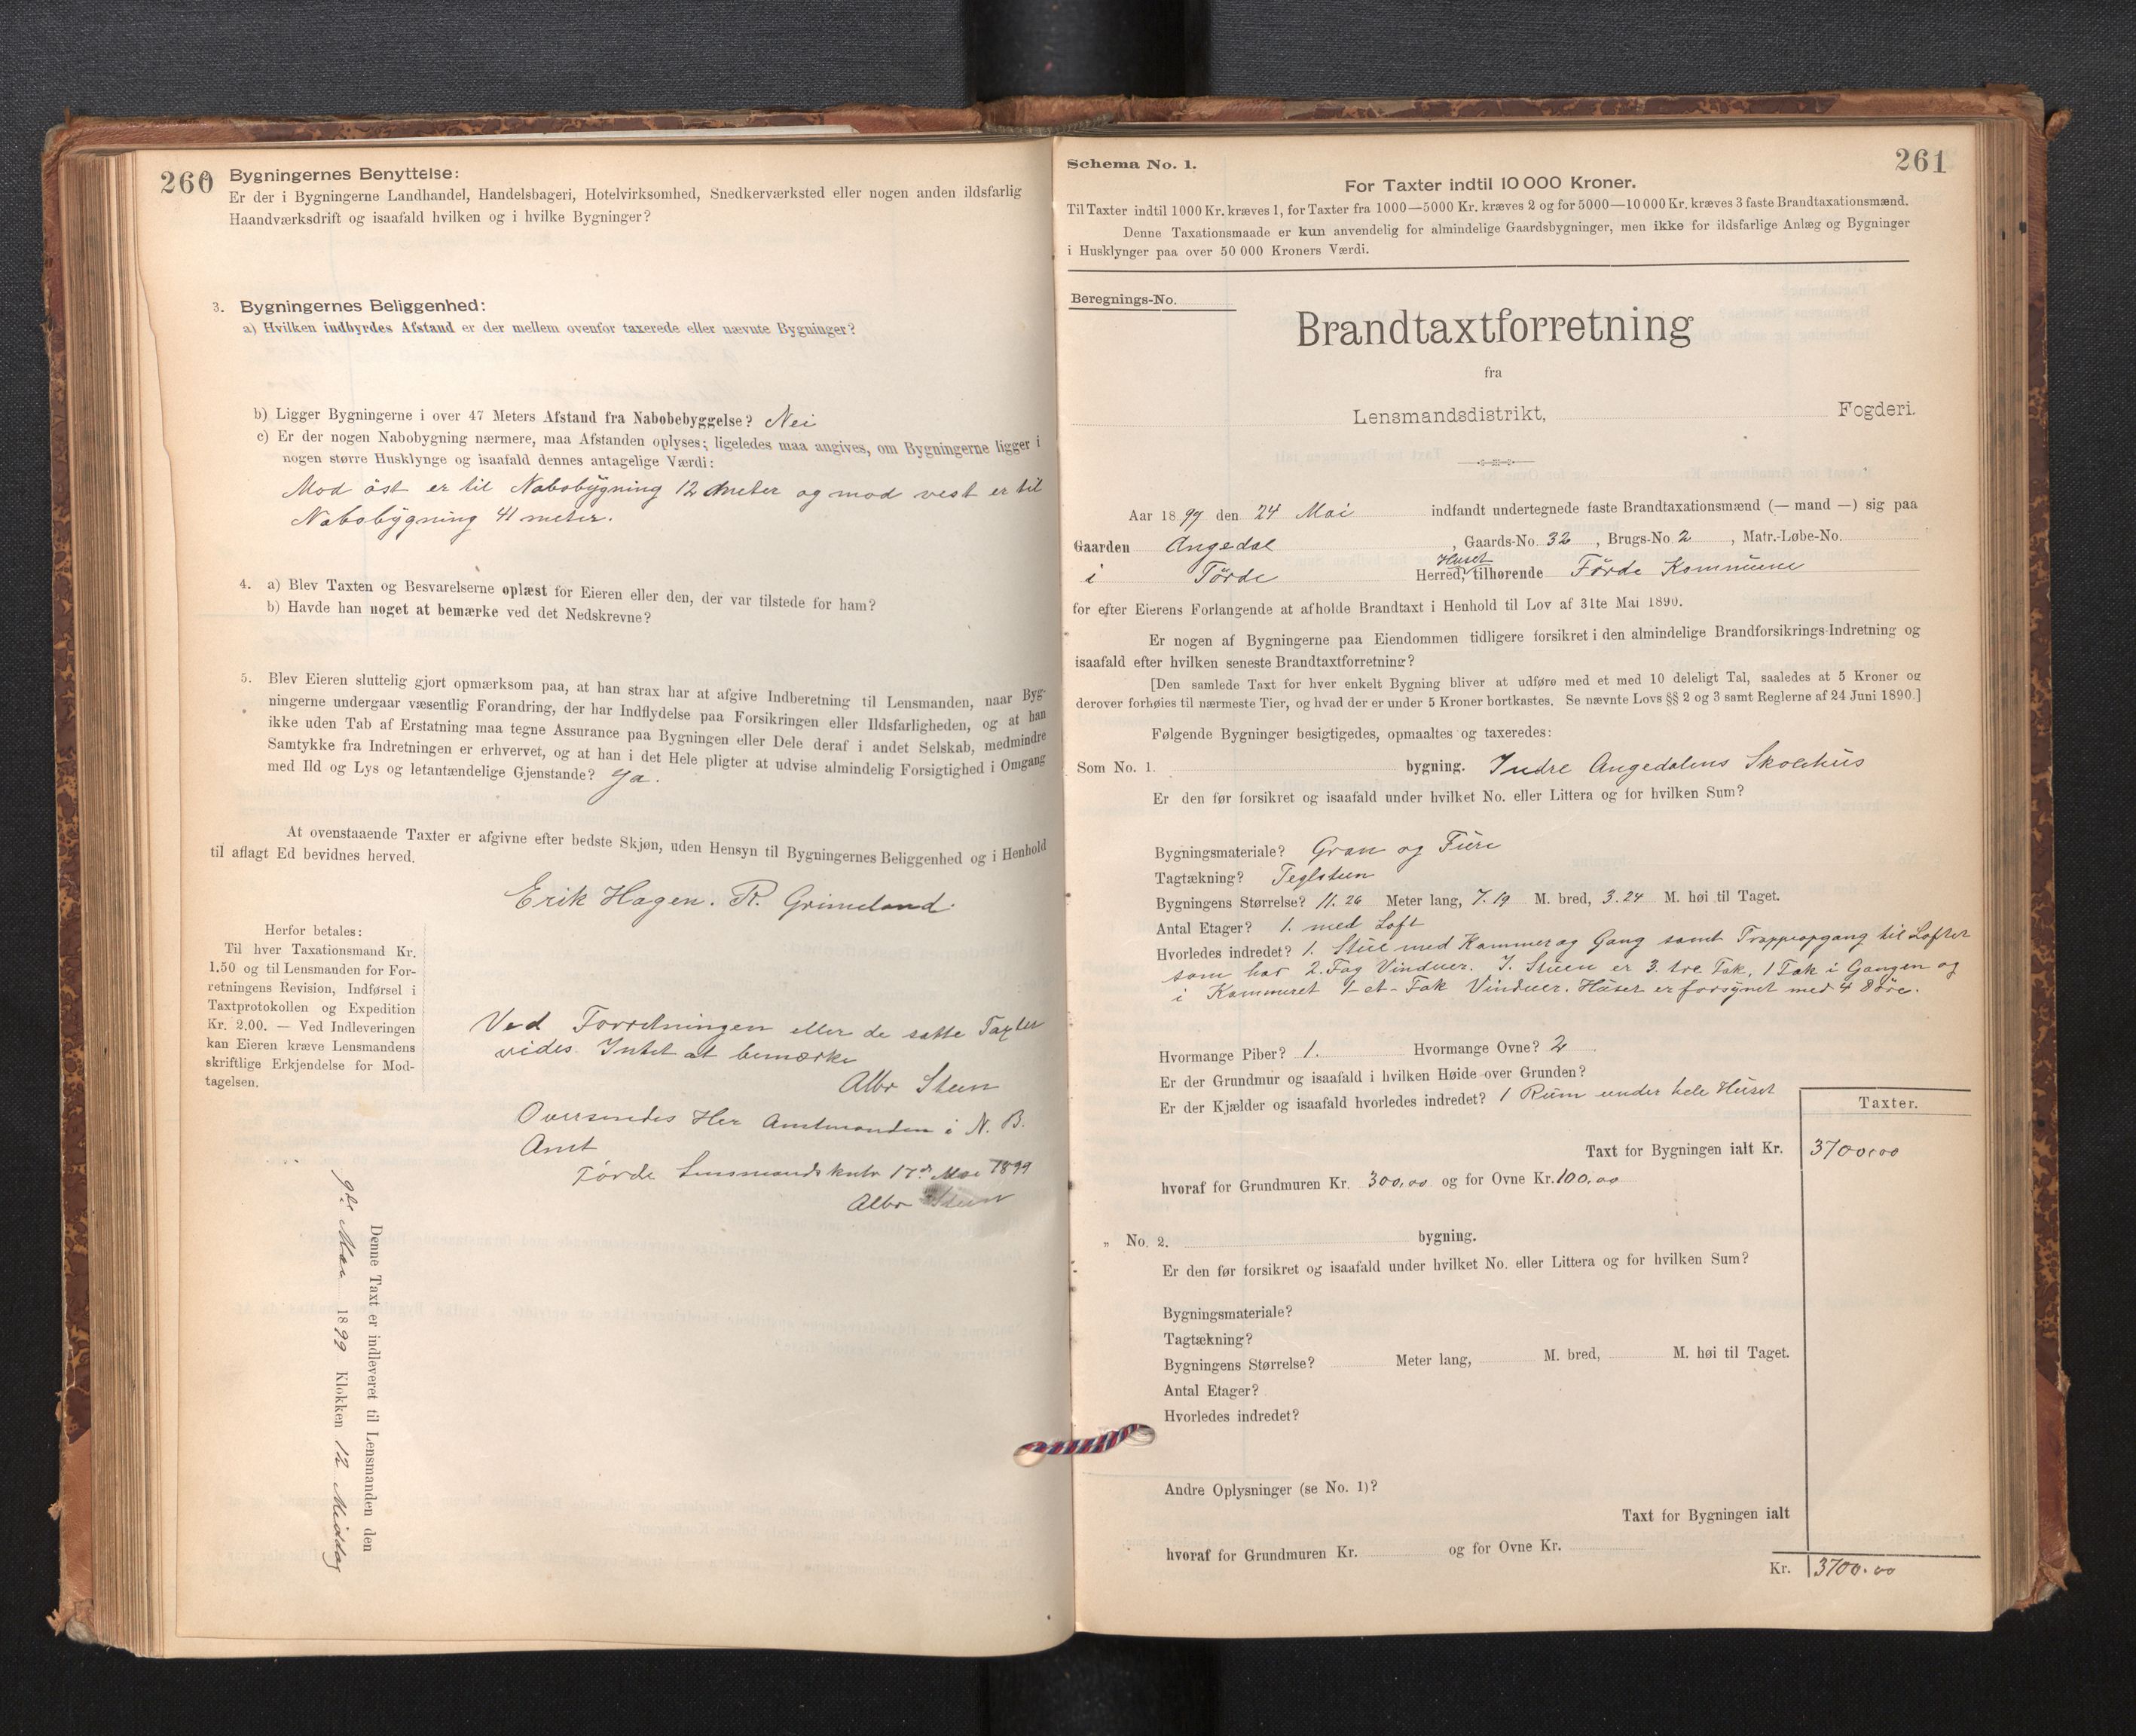 260
Bygningernes Benyttelse:
Er der i Bygningerne Landhandel, Handelsbageri, Hotelvirksomhed, Snedkerværksted eller nogen anden ildsfarlig
Haandværksdrift og isaafald hvilken og i hvilke Bygninger?
3. Bygningernes Beliggenhed:
a) Hvilken indbyrdes Afstand er der mellem ovenfor taxerede eller nævnte Bygninger?
b) Ligger Bygningerne i over 47 Meters Afstand fra Nabobebyggelse? Nei
c) Er der nogen Nabobygning nærmere, maa Afstanden oplyses; ligeledes maa angives, om Bygningerne ligger i
nogen større Husklynge og isaafald dennes antagelige Værdi:
Mod öst er til Nabobygning 12 meter og mod vest er til
Nabobygning 41 meter.
4. a) Blev Taxten og Besvarelserne oplæst for Eieren eller den, der var tilstede for ham?
b) Havde han noget at bemærke ved det Nedskrevne?
5. Blev Eieren sluttelig gjort opmærksom paa, at han strax har at afgive Indberetning til Lensmanden, naar Byg-
ningerne undergaar væsentlig Forandring, der har Indflydelse paa Forsikringen eller Ildsfarligheden, og at han
ikke uden Tab af Erstatning maa tegne Assurance paa Bygningen eller Dele deraf i andet Selskab, medmindre
Samtykke fra Indretningen er erhvervet, og at han i det Hele pligter at udvise almindelig Forsigtighed i Omgang
med Ild og Lys og letantændelige Gjenstande? Ja.
At ovenstaaende Taxter er afgivne efter bedste Skjøn, uden Hensyn til Bygningernes Beliggenhed og i Henhold
til aflagt Ed bevidnes herved.
Erik Hagen. R. Grimeland.
Herfor betales:
Til hver Taxationsmand Kr.
1.50 og til Lensmanden for For-
retningens Revision, Indførsel i
Taxtprotokollen og Expedition
Kr. 2.00. — Ved Indleveringen
kan Eieren kræve Lensmandens
skriftlige Erkjendelse for Mod-
tagelsen.
Ved Forretningen eller de satte Taxter
vides Intet at bemærke
Albr Steen
Oversendes Her Amtmanden i N. B.
Amt
Førde Lensmandskntr 17de Mai 1899
Albr Steen
Denne Taxt er indleveret til Lensmanden den
9de Mai 1899 Klokken 12 Middag
Schema No. 1.
261
For Taxter indtil 10 000 Kroner.
Til Taxter indtil 1000 Kr. kræves 1, for Taxter fra 1000—5000 Kr. kræves 2 og for 5000—10 000 Kr. kræves 3 faste Brandtaxationsmænd.
Denne Taxationsmaade er kun anvendelig for almindelige Gaardsbygninger, men ikke for ildsfarlige Anlæg og Bygninger
i Husklynger paa over 50 000 Kroners Værdi.
Beregnings-No.
Brandtaxtforretning
fra
Lensmandsdistrikt, Fogderi.
Aar 1897 den 24 Mai indfandt undertegnede faste Brandtaxationsmænd (— mand —) sig paa
Gaarden Angedal, Gaards-No. 32, Brugs-No. 2, Matr.-Løbe-No.
Huset
i Förde Herred, tilhørende Förde Kommune
for efter Eierens Forlangende at afholde Brandtaxt i Henhold til Lov af 31te Mai 1890.
Er nogen af Bygningerne paa Eiendommen tidligere forsikret i den almindelige Brandforsikrings-Indretning og
isaafald efter hvilken seneste Brandtaxtforretning?
[Den samlede Taxt for hver enkelt Bygning bliver at udføre med et med 10 deleligt Tal, saaledes at 5 Kroner og
derover forhøies til nærmeste Tier, og hvad der er under 5 Kroner bortkastes. Se nævnte Lovs §§ 2 og 3 samt Reglerne af 24 Juni 1890.]
Følgende Bygninger besigtigedes, opmaaltes og taxeredes:
Som No. 1. bygning. Indre Angedalens Skolehus
Er den før forsikret og isaafald under hvilket No. eller Littera og for hvilken Sum?
Bygningsmateriale? Gran og Furu
Tagtækning? Teglsteen
Bygningens Størrelse? 11.26 Meter lang, 7.19 M. bred, 3.24 M. høi til Taget.
Antal Etager? 1. med Loft
Hvorledes indredet? 1. Stue med Kammer og Gang samt Trappeopgang til Loftet
som har 2. Fag Vinduer. I. Stuen er 3. tre Fak, 1 Fak i Gangen og
i Kammeret 1-et-Fak Vinduer. Huset er forsynet med 4 Döre.
Hvormange Piber? 1. Hvormange Ovne? 2
Er der Grundmur og isaafald i hvilken Høide over Grunden?
Er der Kjælder og isaafald hvorledes indredet? 1 Rum under hele Huset
Taxter.
Taxt for Bygningen ialt Kr. 3700,00
hvoraf for Grundmuren Kr. 300,00 og for Ovne Kr. 100,00
„ No. 2. bygning.
Er den før forsikret og isaafald under hvilket No. eller Littera og for hvilken Sum?
Bygningsmateriale?
Tagtækning?
Bygningens Størrelse? Meter lang, M. bred, M. høi til Taget.
Antal Etager?
Hvorledes indredet?
Andre Oplysninger (se No. 1)?
Taxt for Bygningen ialt
hvoraf for Grundmuren Kr. og for Ovne Kr.
Kr. 3700.00